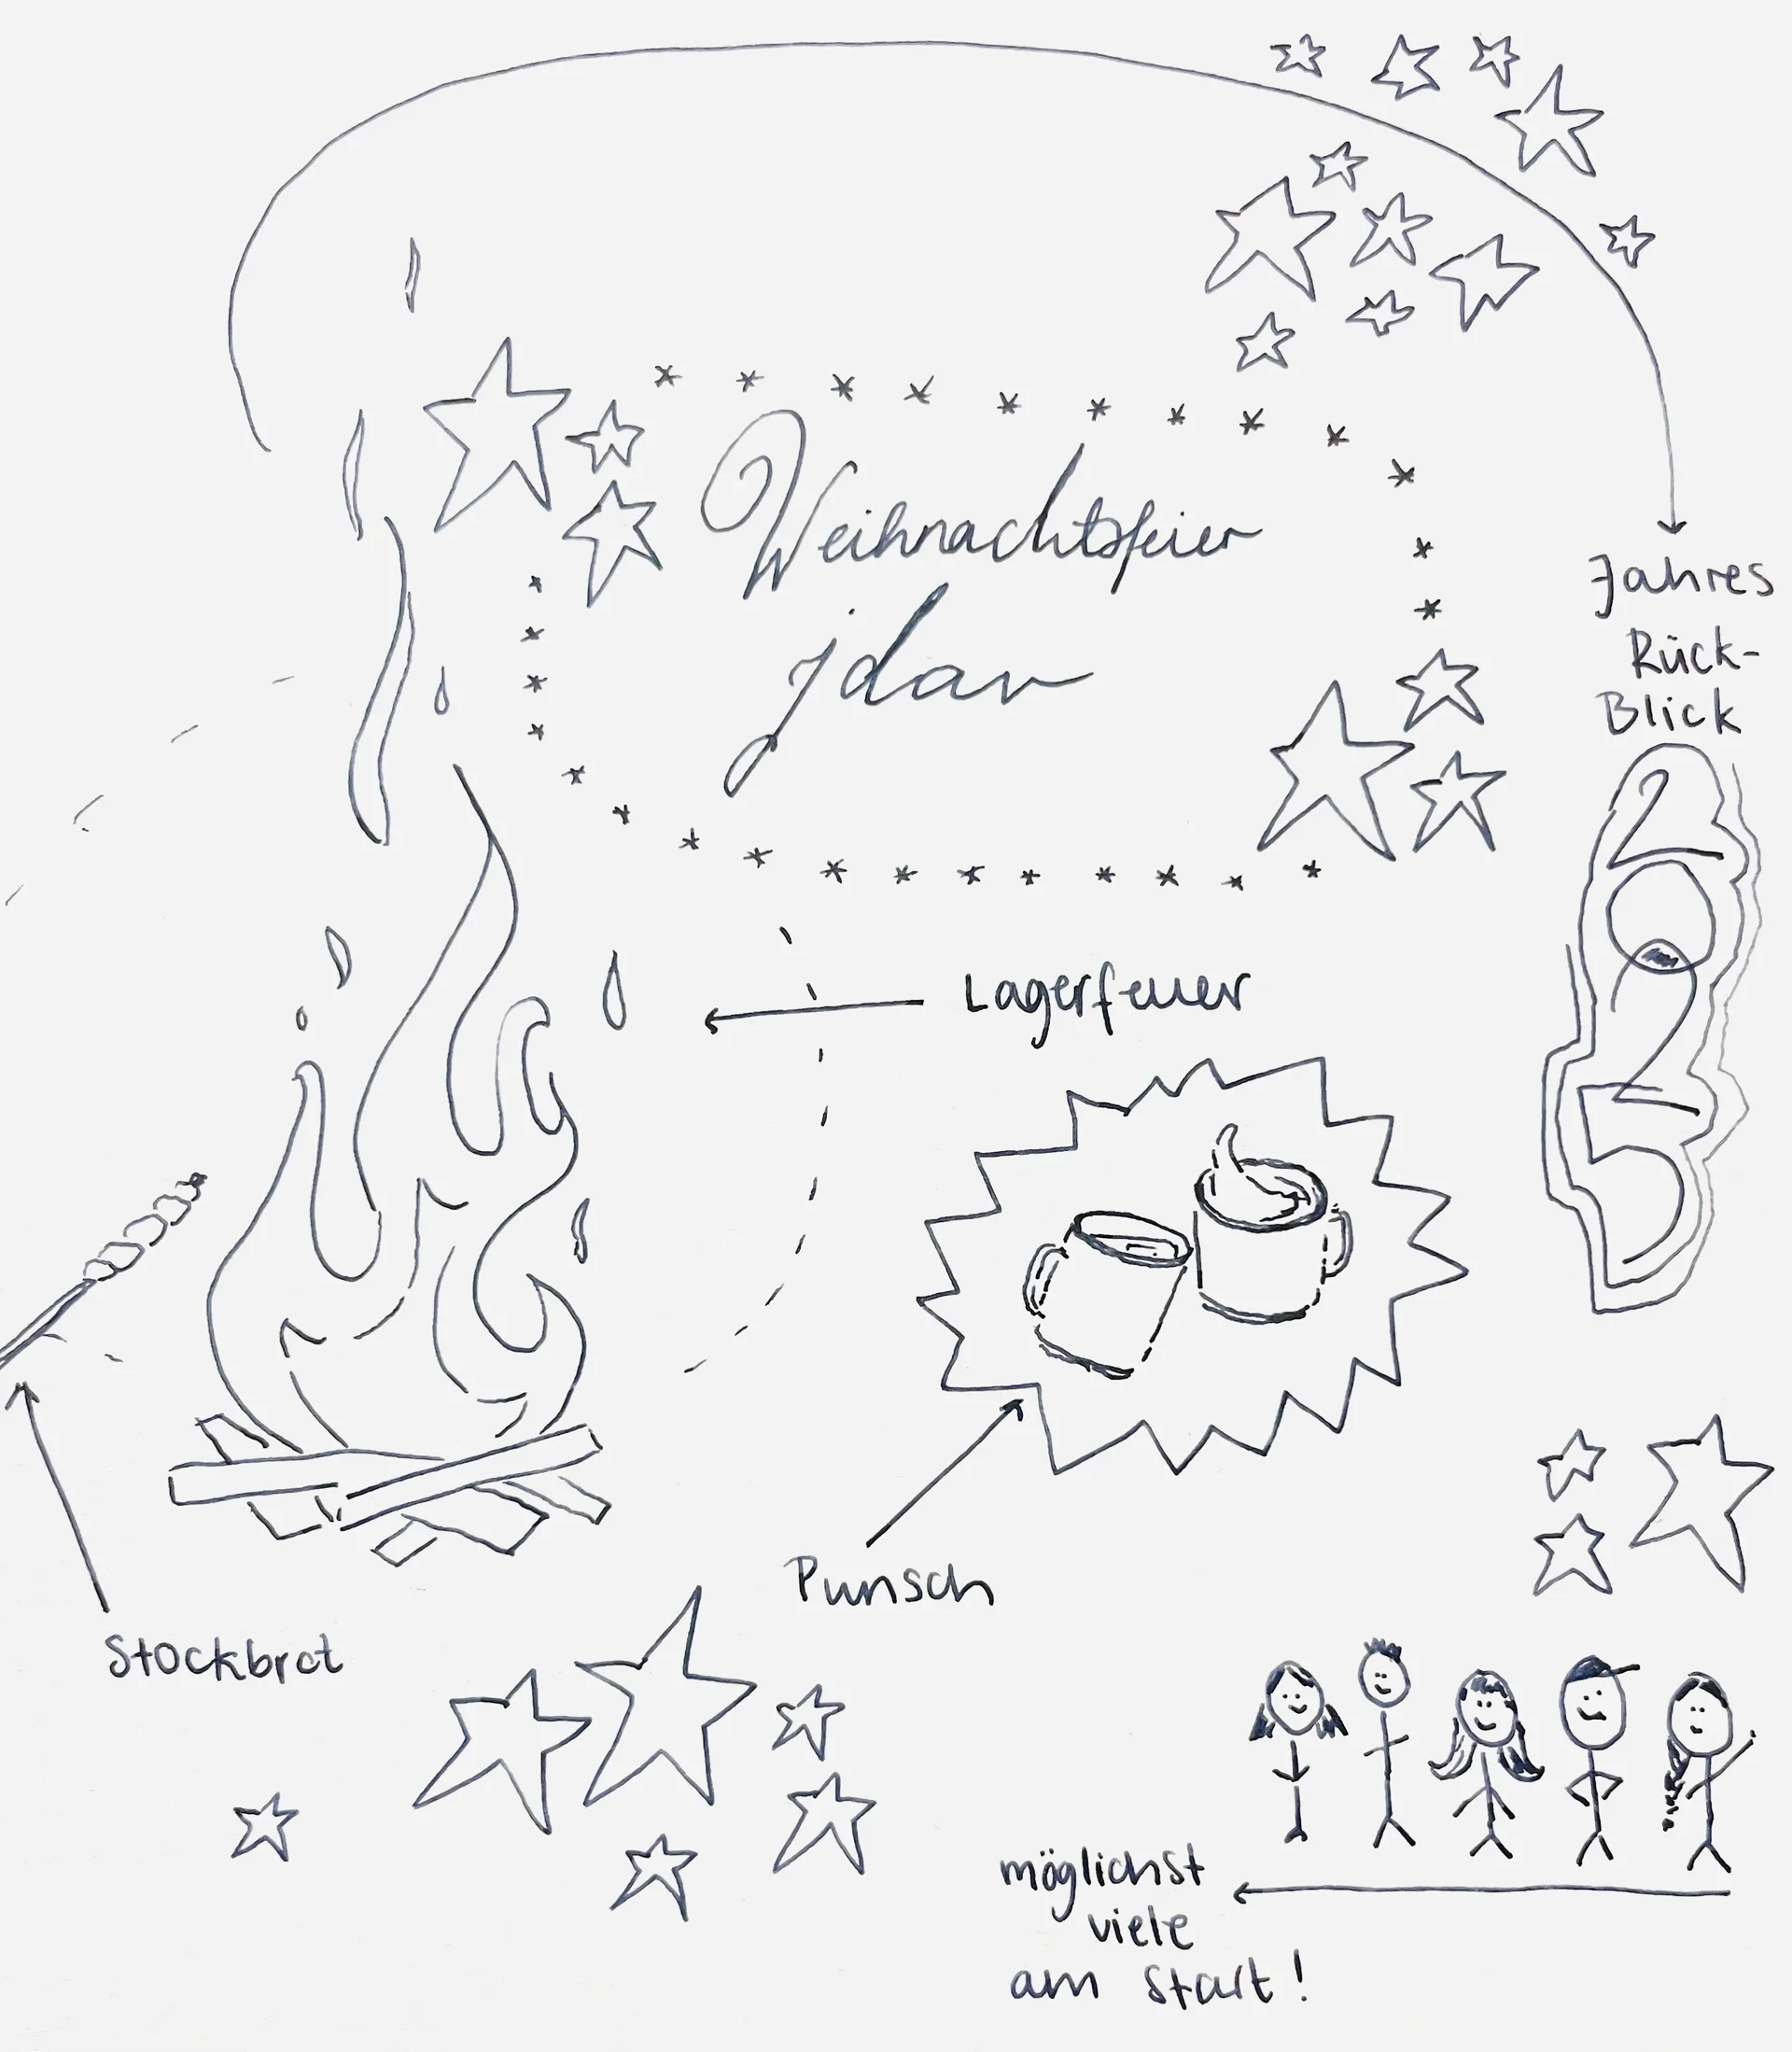 Weihnachtsfeier
jdav
Jahres
Rück-
Blick
2025
Lagerfeuer
Punsch
Stockbrot
möglichst
viele
am Start!